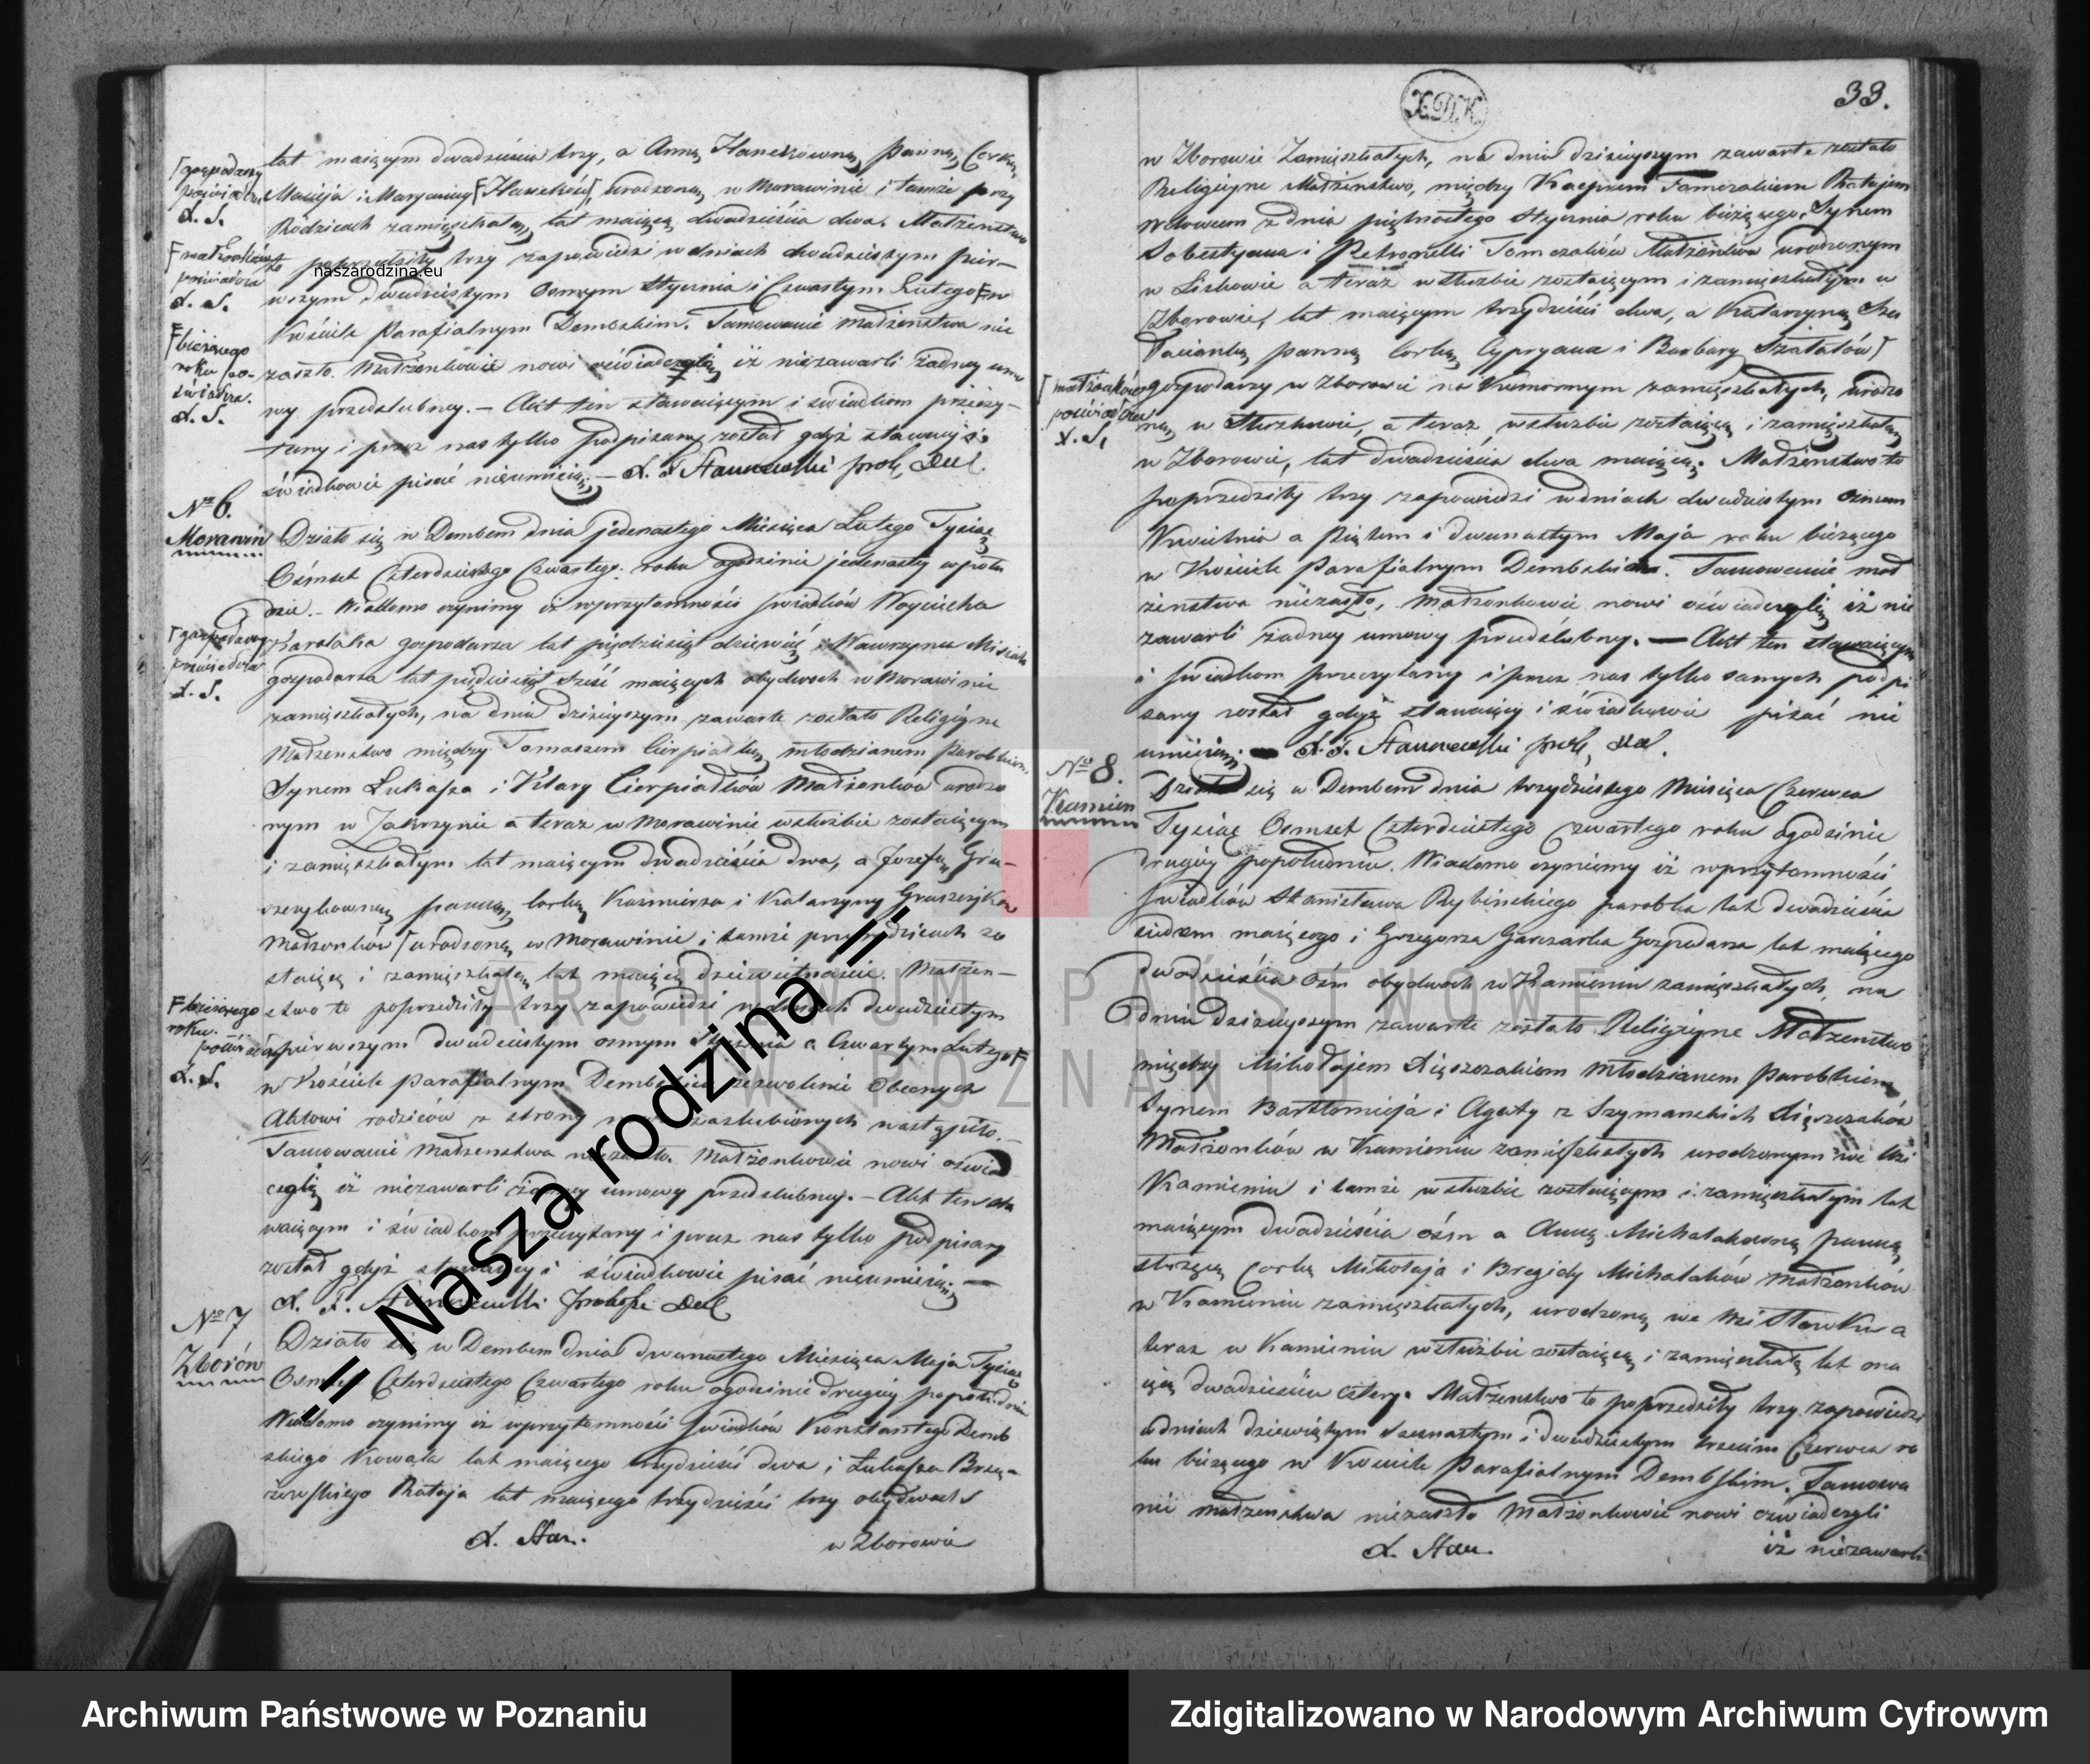 lat maiącym dwadzieścia trzy, a Anną Hanekówną panną, Corką
[gospodarzy
poświadcza
X. S.
Macieja i Maryanny [Haneków], urodzoną w Morawinie i tamże przy
Rodzicach zamięszkałą, lat maiącą dwadzieścia dwa. Małżeństwo
F małżonków
poświadcza
X. S.
to poprzedziły trzy zapowiedzi w dniach dwudziestym pier-
naszarodzina.eu
wszym dwudziestym Osmym Stycznia i Czwartym Lutego F w
Kościele Parafialnym Dembskim. Tamowanie małżeństwa nie
F bieżącego
roku po-
świadcza.
X. S.
zaszło. Małżonkowie nowi oświadczyli iż niezawarli żadney umo
wy przedślubney. — Akt ten stawaiącym i świadkom przeczy-
tany i przez nas tylko podpisany został gdyż stawaiący i
świadkowie pisać nieumieią. — X. S. prob. Del.
No 6.
Morawin
Działo się w Dembem dnia jedenastego Miesiąca Lutego Tysiąc
Ośmset Czterdziestego Czwartego roku ogodzinie jedenasty wpołu
dnie. — Wiadomo czynimy iż wprzytomności świadków Woyciecha
[gospodarzy
poświadcza
X. S.
gospodarza lat pięćdziesiąt dziewięć i Wawrzyńca
gospodarza lat pięćdziesiąt sześć maiących obydwoch w Morawinie
zamięszkałych, na dniu dzisieyszym zawarte zostało Religiyne
Małżeństwo między Tomaszem Cierpiałką młodzianem parobkiem
Synem Łukasza i Klary Cierpiałków Małżonków urodzo
nym w a teraz w Morawinie wsłużbie zostaiącym
i zamięszkałym lat maiącym dwadzieścia dwa, a Jozefą Gru-
szczykowną panną, Corką Kazmierza i Katarzyny Gruszczyków
Małżonków [urodzoną w Morawinie i tamże przy rodzicach zo
staiącą i zamięszkałą lat maiącą dziewiętnaście. Małżeń-
F bieżącego
roku.
poświadcza
X. S.
stwo to poprzedziły trzy zapowiedzi w dniach dwudziestym
pierwszym dwudziestym osmym Stycznia a Czwartym Lutego F
w Kościele parafialnym Dembskim zezwolenie obecnych
Aktowi rodziców z strony zaslubionych nastąpiło. —
Tamowanie Małżeństwa niezaszło. Małżonkowie nowi oświad
czyli iż niezawarli żadney umowy przedślubney. — Akt ten sta
waiącym i świadkom przeczytany i przez nas tylko podpisany
został gdyż stawaiący i świadkowie pisać nieumieią. —
X. S. Del
No 7
Zborów
Działo się w Dembem dnia dwunastego Miesiąca Maja Tysiąc
Osmset Czterdziestego Czwartego roku ogodzinie drugiy popołudniu
Wiadomo czynimy iż wprzytomności świadków Konstantego Demb
skiego Kowala lat maiącego trzydzieści dwa i Łukasza
Rataja lat maiącego trzydzieści trzy obydwoch
X. Stan. w Zborowie
X.D.K.
33.
w Zborowie Zamięszkałych, na dniu dzisieyszym zawarte zostało
Religiyne Małżeństwo, między Kacprem Tomczakiem Ratajem
wdowcem z dnia piętnastego Stycznia roku bieżącego, Synem
Sobestyana i Petronelli Tomczaków Małżonków urodzonym
w Liskowie a teraz wsłużbie zostaiącym i zamięszkałym w
Zborowie, lat maiącym trzydzieści dwa, a Katarzyną Sza
łacianką panną Corką Cypryana i Barbary Szałatów [
[małżonków
poświadcza
X. S.
gospodarzy w Zborowie na Komornym zamięszkałych, urodzo
ną w a teraz wsłużbie zostaiącą i zamięszkałą
w Zborowie, lat dwadzieścia dwa maiącą. Małżeństwo to
poprzedziły trzy zapowiedzi w dniach dwudziestym osmem
Kwietnia a piątem i dwunastym Maja roku bieżącego
w Kościele Parafialnym Dembskim. Tamowanie mał
żeństwa niezaszło, Małżonkowie nowi oświadczyli iż nie
zawarli żadney umowy przedślubney. — Akt ten stawaiącym
i świadkom przeczytany i przez nas tylko samych podpi
sany został gdyż stawaiący i świadkowie pisać nie
umieią. — X. S. prob. Del.
No 8.
Kamień
Działo się w Dembem dnia trzydziestego Miesiąca Czerwca
Tysiąc Osmset Czterdziestego Czwartego roku ogodzinie
drugiy popołudniu. Wiadomo czyniemy iż wprzytomności
świadków Stanisława Rybińskiego parobka lat dwadzieścia
siedem maiącego i Grzegorza Garczarka Gospodarza lat maiącego
dwadzieścia ośm obydwoch w Kamieniu zamięszkałych, na
dniu dzisieyszym zawarte zostało Religiyne Małżeństwo
między Mikołajem Młodzianem Parobkiem
Synem Bartłomieja i Agaty z Szymańskich
Małżonków w Kamieniu zamięszkałych urodzonym we Wsi
Kamieniu i tamże wsłużbie zostaiącym i zamięszkałym lat
maiącym dwadzieścia ośm a Anną Michalakówną panną,
Corką Mikołaja i Bregidy Michalaków Małżonków
w Kamieniu zamięszkałych, urodzoną we Wsi a
teraz w Kamieniu wsłużbie zostaiącą i zamięszkałą lat ma
iącą dwadzieścia cztery. Małżeństwo to poprzedziły trzy zapowiedzi
w dniach dziewiątym szesnastym i dwudziestym trzecim Czerwca ro
ku bieżącego w Kościele Parafialnym Dembskim. Tamowa
nie małżeństwa niezaszło Małżonkowie nowi oświadczyli
X. Stan. iż niezawarli
-= Nasza rodzina =-
ARCHIWUM PAŃSTWOWE
W POZNANIU
Archiwum Państwowe w Poznaniu
Zdigitalizowano w Narodowym Archiwum Cyfrowym